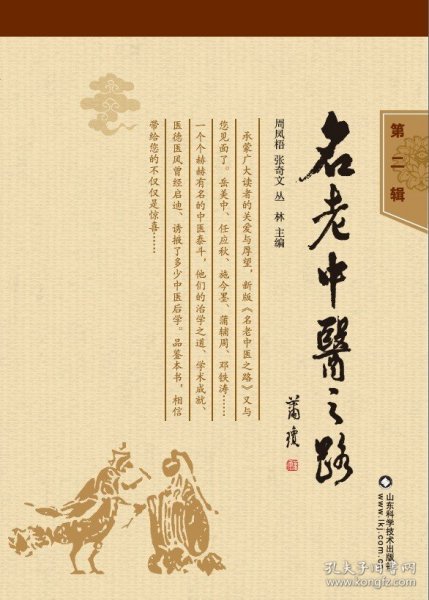 第二辑
名老中醫之路
周凤梧 张奇文 丛 林 主编
承蒙广大读者的关爱与厚望，新版《名老中医之路》又与
您见面了。岳美中、任应秋、施今墨、蒲辅周、邓铁涛……
一个个赫赫有名的中医泰斗，他们的治学之道、学术成就、
医德医风曾经启迪、诱掖了多少中医后学。品鉴本书，相信
带给您的不仅仅是惊喜……
山东科学技术出版社
www.lkj.com.cn
孔夫子旧书网
www.kongfz.com